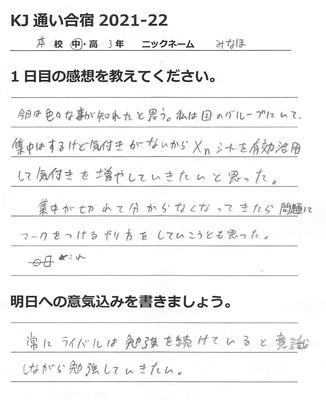 KJ 通い合宿 2021-22
本 校 中・高 3年 ニックネーム みなほ
1日目の感想を教えてください。
今日は色々な事が知れたと思う。私は国のグループにいて、
集中はするけど気付きがないから Xnシートを有効活用
して気付きを増やしていきたいと思った。
集中が切れて分からなくなってきたら 問題に
マークをつけるやり方をしていこうとも思った。
明日への意気込みを書きましょう。
常にライバルは勉強を続けていると意識
しながら勉強していきたい。